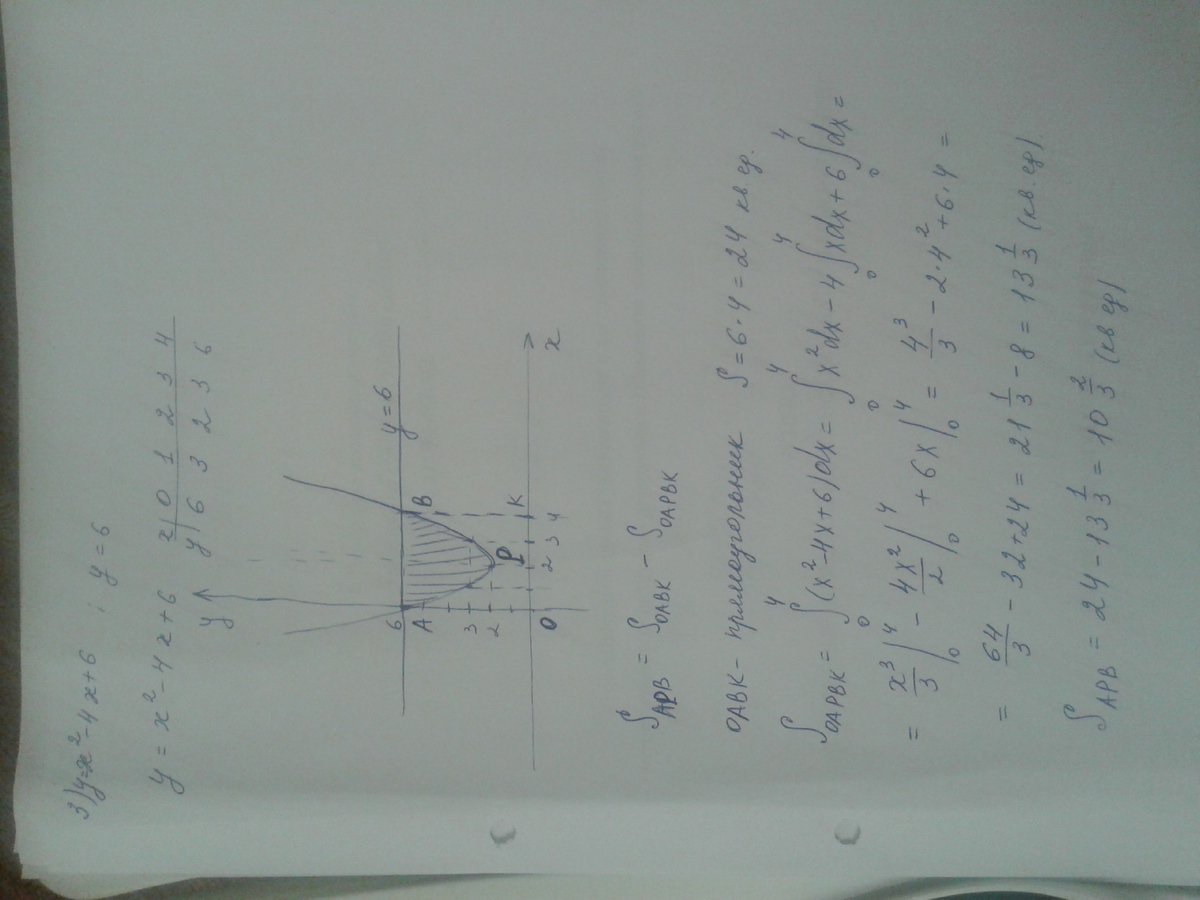 3) y=x²-4x+6 ; y=6
y = x² - 4x+6
x | 0 1 2 3 4
y | 6 3 2 3 6
y
6 y=6
A B
3
2 P K
O 2 3 4 x
S_APB = S_OABK - S_OAPBK
OABK - прямоугольник S = 6·4 = 24 кв ед.
S_OAPBK = ∫₀⁴ (x²-4x+6)dx = ∫₀⁴ x²dx - 4∫₀⁴ xdx + 6∫₀⁴ dx =
= x³/3 |₀⁴ - 4x²/2 |₀⁴ + 6x |₀⁴ = 4³/3 - 2·4² + 6·4 =
= 64/3 - 32 + 24 = 21 1/3 - 8 = 13 1/3 (кв. ед)
S_APB = 24 - 13 1/3 = 10 2/3 (кв ед)